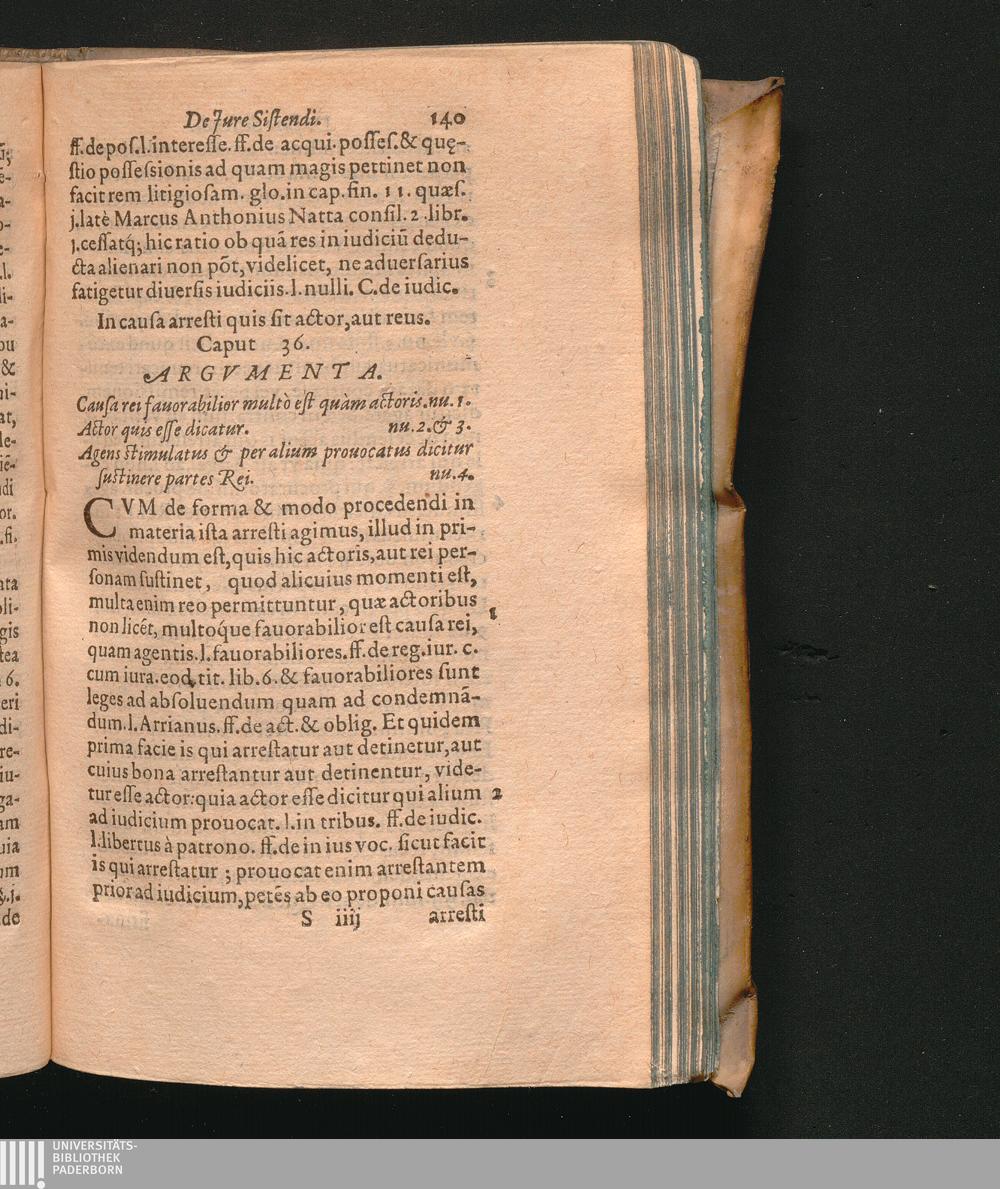 De Jure Sistendi. 140
ff. de pos. l. interesse. ff. de acqui. posses. & quę-
stio possessionis ad quam magis pertinet non
facit rem litigiosam. glo. in cap. fin. 11. quæs.
j. latè Marcus Anthonius Natta consil. 2. libr.
j. cessatq́; hic ratio ob quã res in iudiciũ dedu-
cta alienari non põt, videlicet, ne aduersarius
fatigetur diuersis iudiciis. l. nulli. C. de iudic.
In causa arresti quis sit actor, aut reus.
Caput 36.
ARGVMENTA.
Causa rei fauorabilior multò est quàm actoris. nu. 1.
Actor quis esse dicatur. nu. 2. & 3.
Agens stimulatus & per alium prouocatus dicitur
sustinere partes Rei. nu. 4.
CVM de forma & modo procedendi in
materia ista arresti agimus, illud in pri-
mis videndum est, quis hic actoris, aut rei per-
sonam sustinet, quod alicuius momenti est,
multa enim reo permittuntur, quæ actoribus
non licét, multoq́ue fauorabilior est causa rei, 1
quam agentis. l. fauorabiliores. ff. de reg. iur. c.
cum iura. eod. tit. lib. 6. & fauorabiliores sunt
leges ad absoluendum quam ad condemnã-
dum. l. Arrianus. ff. de act. & oblig. Et quidem
prima facie is qui arrestatur aut detinetur, aut
cuius bona arrestantur aut detinentur, vide-
tur esse actor: quia actor esse dicitur qui alium 2
ad iudicium prouocat. l. in tribus. ff. de iudic.
l. libertus à patrono. ff. de in ius voc. sicut facit
is qui arrestatur; prouocat enim arrestantem
prior ad iudicium, petẽs ab eo proponi causas
S iiij arresti
UNIVERSITÄTS-
BIBLIOTHEK
PADERBORN